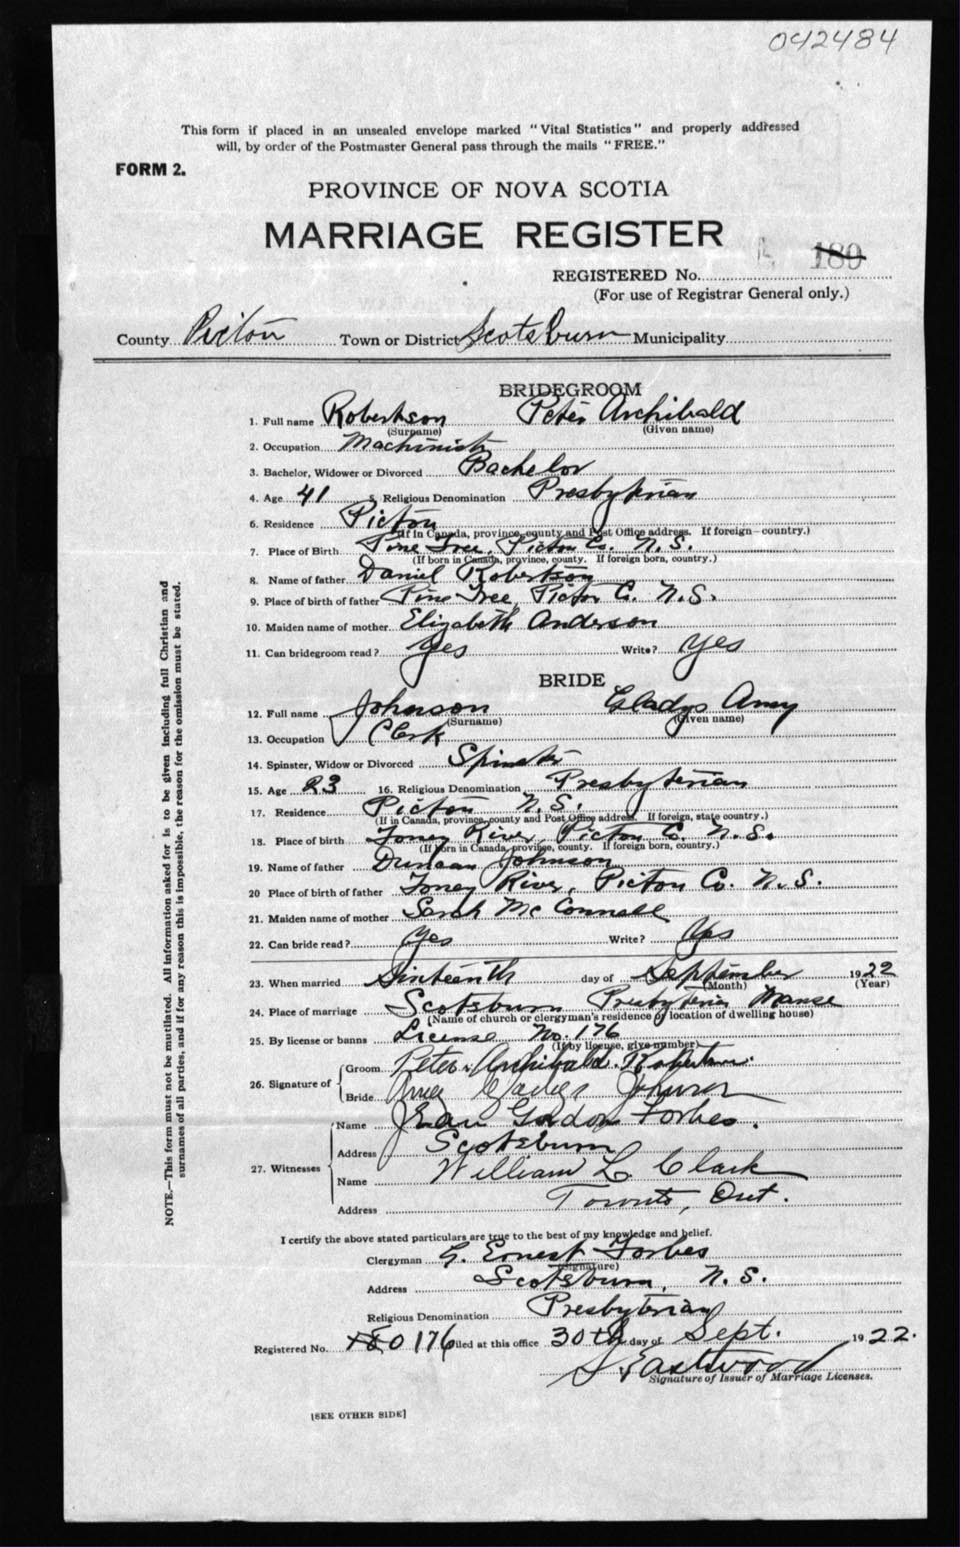 042484
This form if placed in an unsealed envelope marked "Vital Statistics" and properly addressed
will, by order of the Postmaster General pass through the mails "FREE."
FORM 2.
PROVINCE OF NOVA SCOTIA
MARRIAGE REGISTER
REGISTERED No. 180
(For use of Registrar General only.)
County Picton Town or District Scotsburn Municipality
BRIDEGROOM
1. Full name Robertson Peter Archibald
(Surname) (Given name)
2. Occupation Machinist
3. Bachelor, Widower or Divorced Bachelor
4. Age 41 5. Religious Denomination Presbyterian
6. Residence Picton
(If in Canada, province, county and Post Office address. If foreign—country.)
7. Place of Birth Pine Tree, Picton Co. N.S.
(If born in Canada, province, county. If foreign born, country.)
8. Name of father Daniel Robertson
9. Place of birth of father Pine Tree, Picton Co. N.S.
10. Maiden name of mother Elizabeth Anderson
11. Can bridegroom read? yes Write? yes
BRIDE
12. Full name Johnson Gladys Amy
(Surname) (Given name)
13. Occupation Clerk
14. Spinster, Widow or Divorced Spinster
15. Age 23 16. Religious Denomination Presbyterian
17. Residence Picton N.S.
(If in Canada, province, county and Post Office address. If foreign, state country.)
18. Place of birth Toney River, Picton Co. N.S.
(If born in Canada, province, county. If foreign born, country.)
19. Name of father Duncan Johnson
20 Place of birth of father Toney River, Picton Co. N.S.
21. Maiden name of mother Sarah McConnell
22. Can bride read? yes Write? yes
23. When married Sixteenth day of September 1922
(Month) (Year)
24. Place of marriage Scotsburn Presbyterian Manse
(Name of church or clergyman's residence or location of dwelling house)
25. By license or banns License No. 176
(If by license, give number)
26. Signature of Groom Peter Archibald Robertson
Bride Amy Gladys Johnson
27. Witnesses
Name Jean Gordon Forbes.
Address Scotsburn
Name William L Clark
Address Toronto, Ont.
I certify the above stated particulars are true to the best of my knowledge and belief.
Clergyman G. Ernest Forbes
(Signature)
Address Scotsburn, N.S.
Religious Denomination Presbyterian
Registered No. 180 176 filed at this office 30th day of Sept. 1922.
Eastwood
Signature of Issuer of Marriage Licenses.
[SEE OTHER SIDE]
NOTE.—This form must not be mutilated. All information asked for is to be given including full Christian and
surnames of all parties, and if for any reason this is impossible, the reason for the omission must be stated.